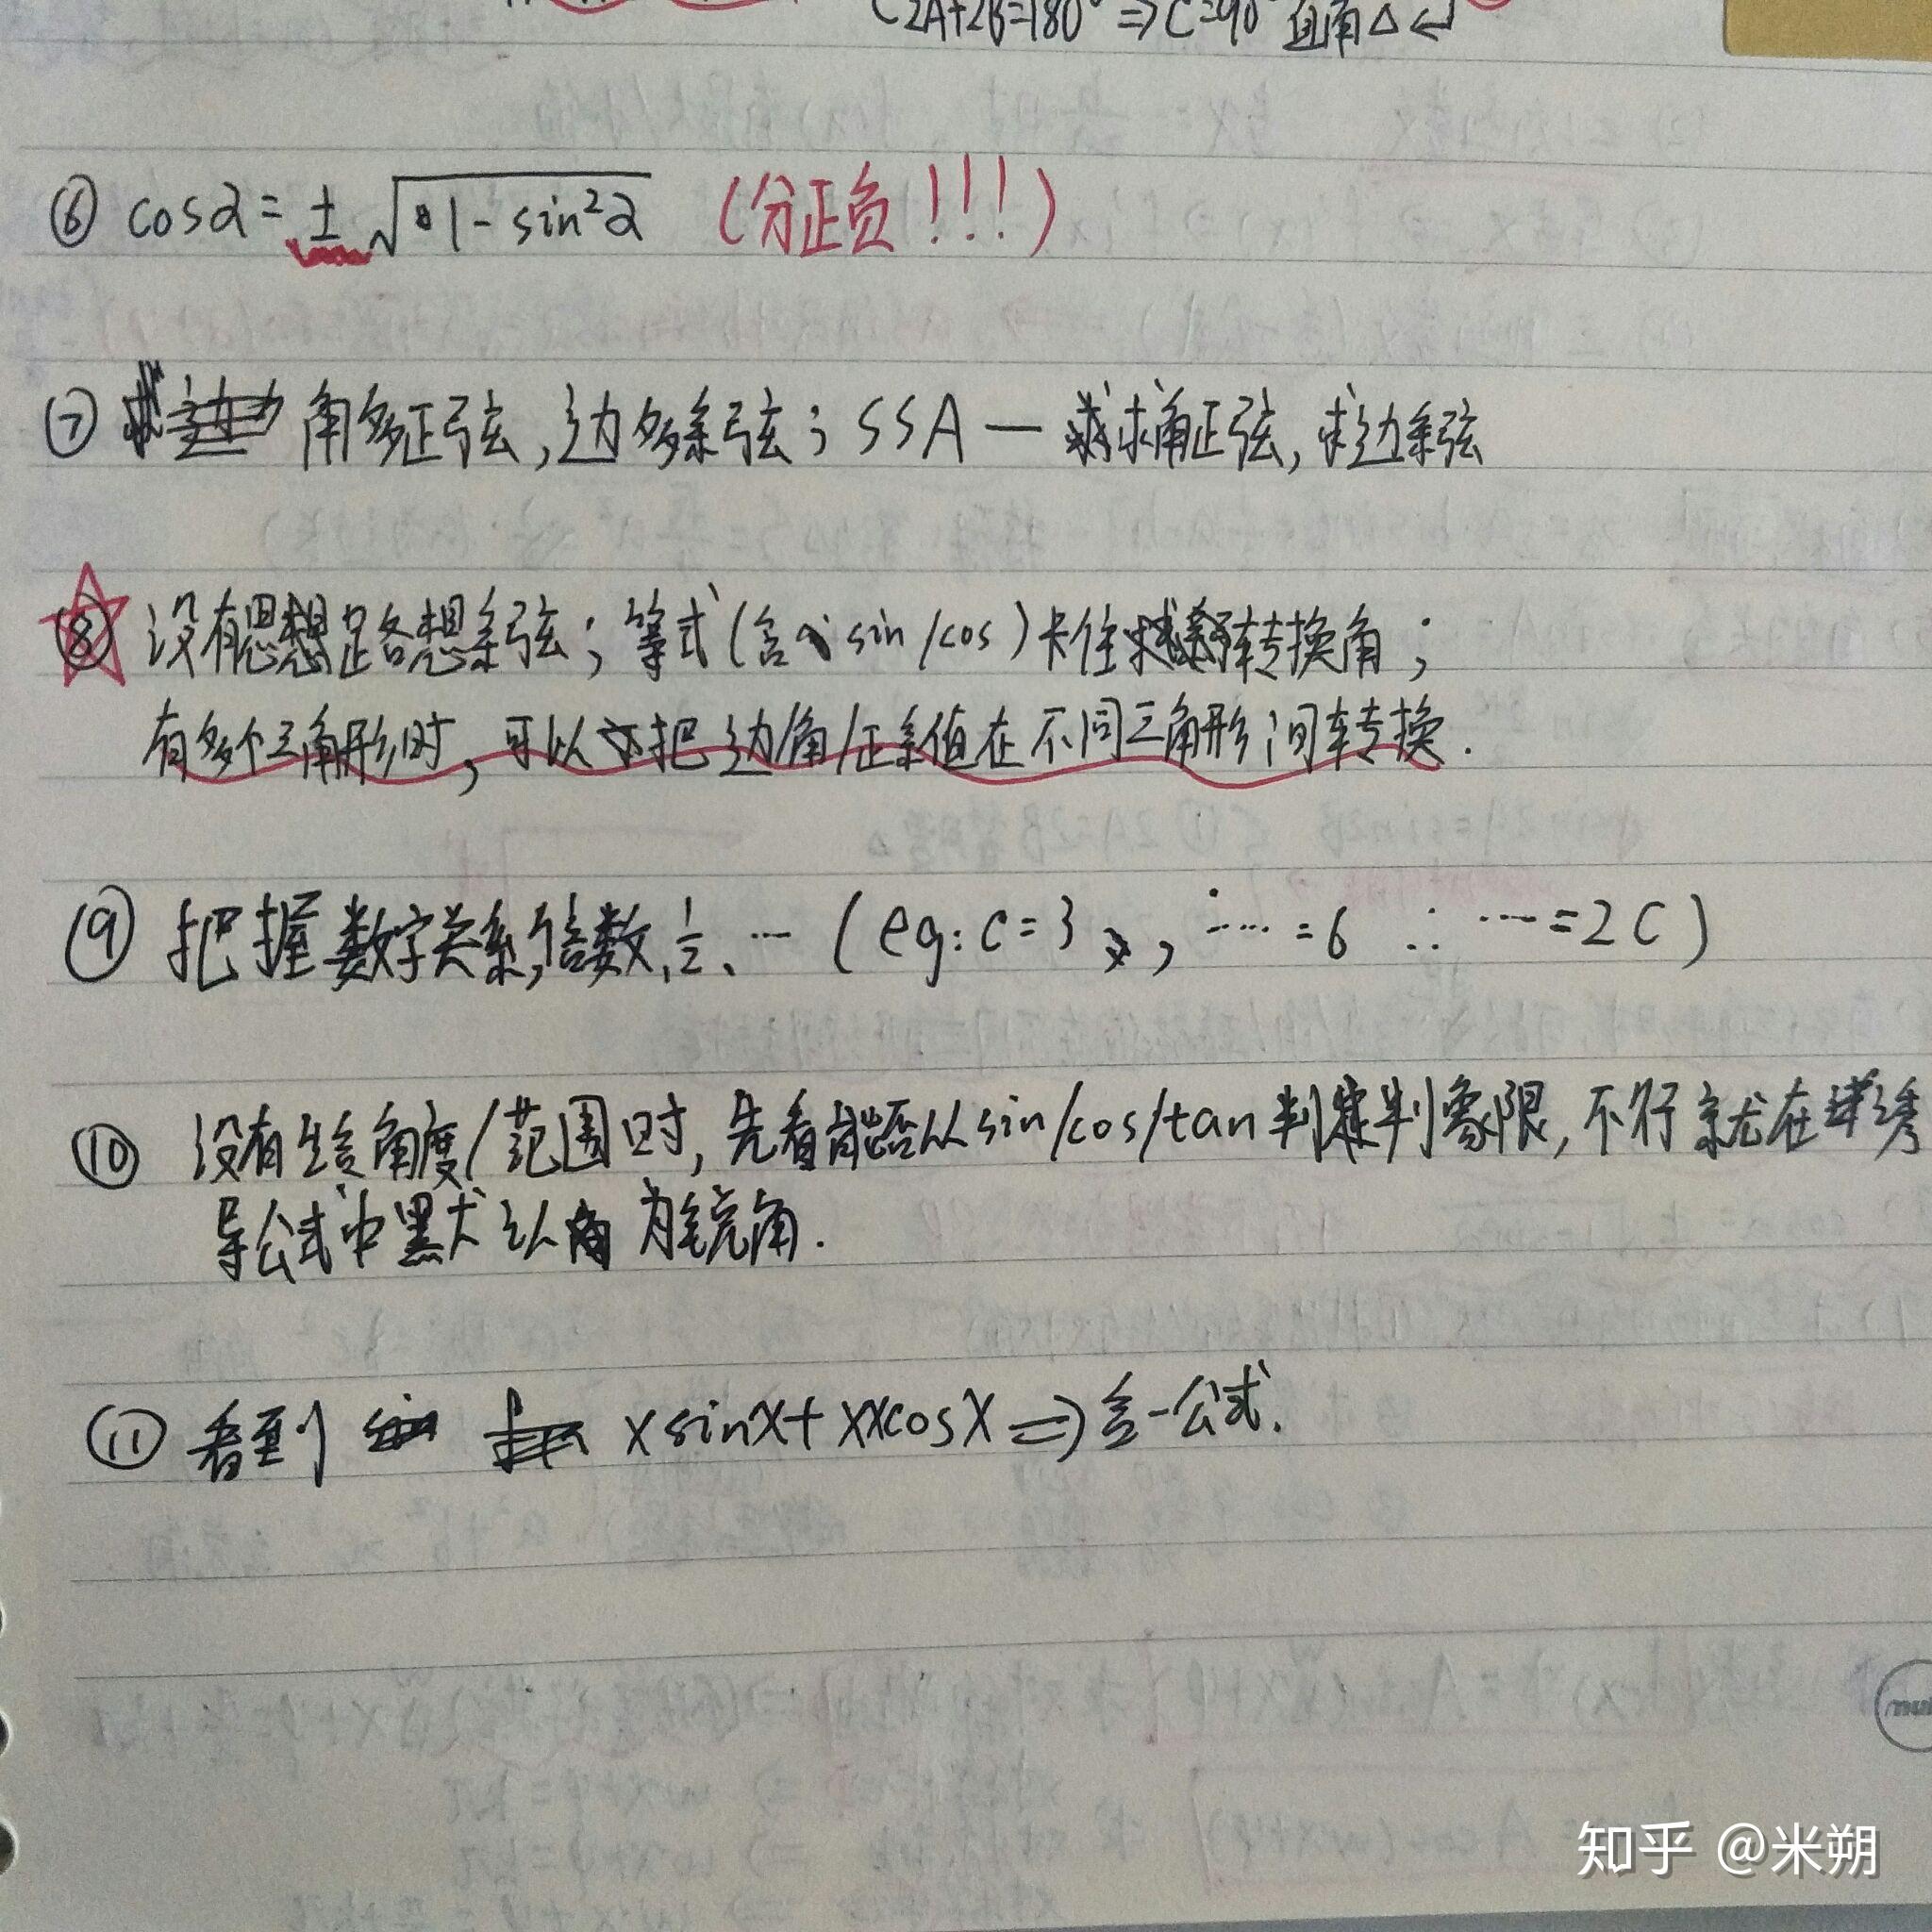 2A+2B=180° ⇒ C=90° 直角△
⑥ cosα=±√1-sin²α (分正负!!!)
⑦ 角多正弦,边多余弦;SSA—求角正弦,求边余弦
⑧ 没有思路想余弦;等式(含sin/cos)卡住转换角;
有多个三角形时,可以把边/角/正余值在不同三角形间转换.
⑨ 把握数字关系,倍数,½、…(eg:c=3,∵…=6 ∴…=2c)
⑩ 没有给角度/范围时,先看能否从sin/cos/tan判象限,不行就在诱
导公式中默认角为锐角.
⑪ 看到 xsinx+xxcosx⇒合一公式.
知乎 @米朔